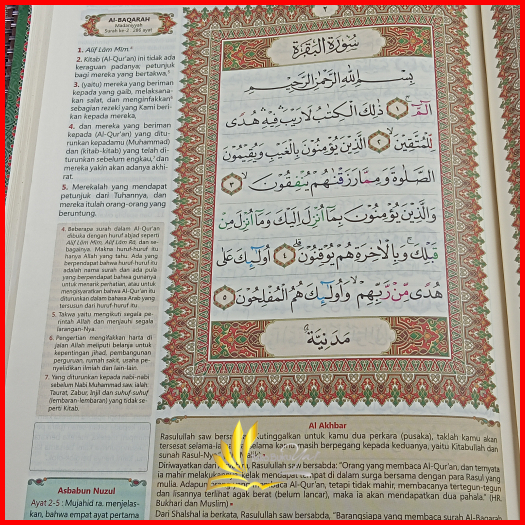 Al-BAQARAH
Madaniyyah
Surah ke-2 : 286 ayat
1. Alif Lâm Mîm.⁴
2. Kitab (Al-Qur'an) ini tidak ada
keraguan padanya; petunjuk
bagi mereka yang bertakwa,⁵
3. (yaitu) mereka yang beriman
kepada yang gaib, melaksana-
kan salat, dan menginfakkan⁶
sebagian rezeki yang Kami beri-
kan kepada mereka,
4. dan mereka yang beriman
kepada (Al-Qur'an) yang ditu-
runkan kepadamu (Muhammad)
dan (kitab-kitab) yang telah di-
turunkan sebelum engkau,⁷ dan
mereka yakin akan adanya akhi-
rat.
5. Merekalah yang mendapat
petunjuk dari Tuhannya, dan
mereka itulah orang-orang yang
beruntung.
4. Beberapa surah dalam Al-Qur'an
dibuka dengan huruf abjad seperti
Alif Lâm Mîm, Alif Lâm Râ, dan se-
bagainya. Makna huruf-huruf itu
hanya Allah yang tahu. Ada yang
berpendapat bahwa huruf-huruf itu
adalah nama surah dan ada pula
yang berpendapat bahwa gunanya
untuk menarik perhatian, atau untuk
mengisyaratkan bahwa Al-Qur'an itu
diturunkan dalam bahasa Arab yang
tersusun dari huruf-huruf itu.
5. Takwa yaitu mengikuti segala pe-
rintah Allah dan menjauhi segala
larangan-Nya.
6. Pengertian menginfakkan harta di
jalan Allah meliputi belanja untuk
kepentingan jihad, pembangunan
perguruan, rumah sakit, usaha pe-
nyelidikan ilmiah dan lain-lain.
7. Yang diturunkan kepada nabi-nabi
sebelum Nabi Muhammad saw. ialah:
Taurat, Zabur, Injil dan suhuf-suhuf
(lembaran-lembaran) yang tidak se-
perti Kitab.
Asbabun Nuzul
Ayat 2-5 : Mujahid ra. menjelas-
kan, bahwa empat ayat pertama
٢
سُورَةُ الْبَقَرَةِ
بِسْمِ اللّٰهِ الرَّحْمٰنِ الرَّحِيْمِ
الۤمّۤ ۚ ١ ذٰلِكَ الْكِتٰبُ لَا رَيْبَ ۛ فِيْهِ ۛ هُدًى
لِّلْمُتَّقِيْنَۙ ٢ الَّذِيْنَ يُؤْمِنُوْنَ بِالْغَيْبِ وَيُقِيْمُوْنَ
الصَّلٰوةَ وَمِمَّا رَزَقْنٰهُمْ يُنْفِقُوْنَ ۙ ٣
وَالَّذِيْنَ يُؤْمِنُوْنَ بِمَآ اُنْزِلَ اِلَيْكَ وَمَآ اُنْزِلَ مِنْ
قَبْلِكَ ۚ وَبِالْاٰخِرَةِ هُمْ يُوْقِنُوْنَۗ ٤ اُولٰۤىِٕكَ عَلٰى
هُدًى مِّنْ رَّبِّهِمْ ۙ وَاُولٰۤىِٕكَ هُمُ الْمُفْلِحُوْنَ ٥
مَدَنِيَّةٌ
Al Akhbar
Rasulullah saw bersabda, Kutinggalkan untuk kamu dua perkara (pusaka), taklah kamu akan
tersesat selama-la selama kamu masih berpegang kepada keduanya, yaitu Kitabullah dan
sunah Rasul-Ny
Diriwayatkan dari Rasulullah saw bersabda: "Orang yang membaca Al-Qur'an, dan ternyata
ia mahir melakukannya, kelak mendapat tempat di dalam surga bersama dengan para Rasul yang
mulia. Adapun membaca Al-Qur'an, tetapi tidak mahir, membacanya tertegun-tegun
dan lisannya terlihat agak berat (belum lancar), maka ia akan mendapatkan dua pahala." (HR.
Bukhari dan Muslim)
Dari Shalshal ia berkata, Rasulullah saw bersabda, "Barangsiapa yang membaca surah Al-Baqarah